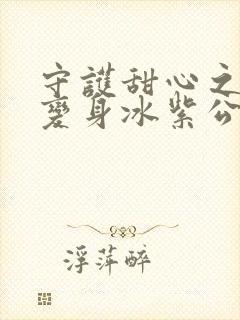 守護甜心之
變身冰紫公
浮萍醉